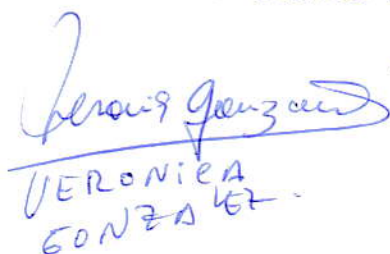 Veronica Gonzalez
VERONICA
GONZALEZ.